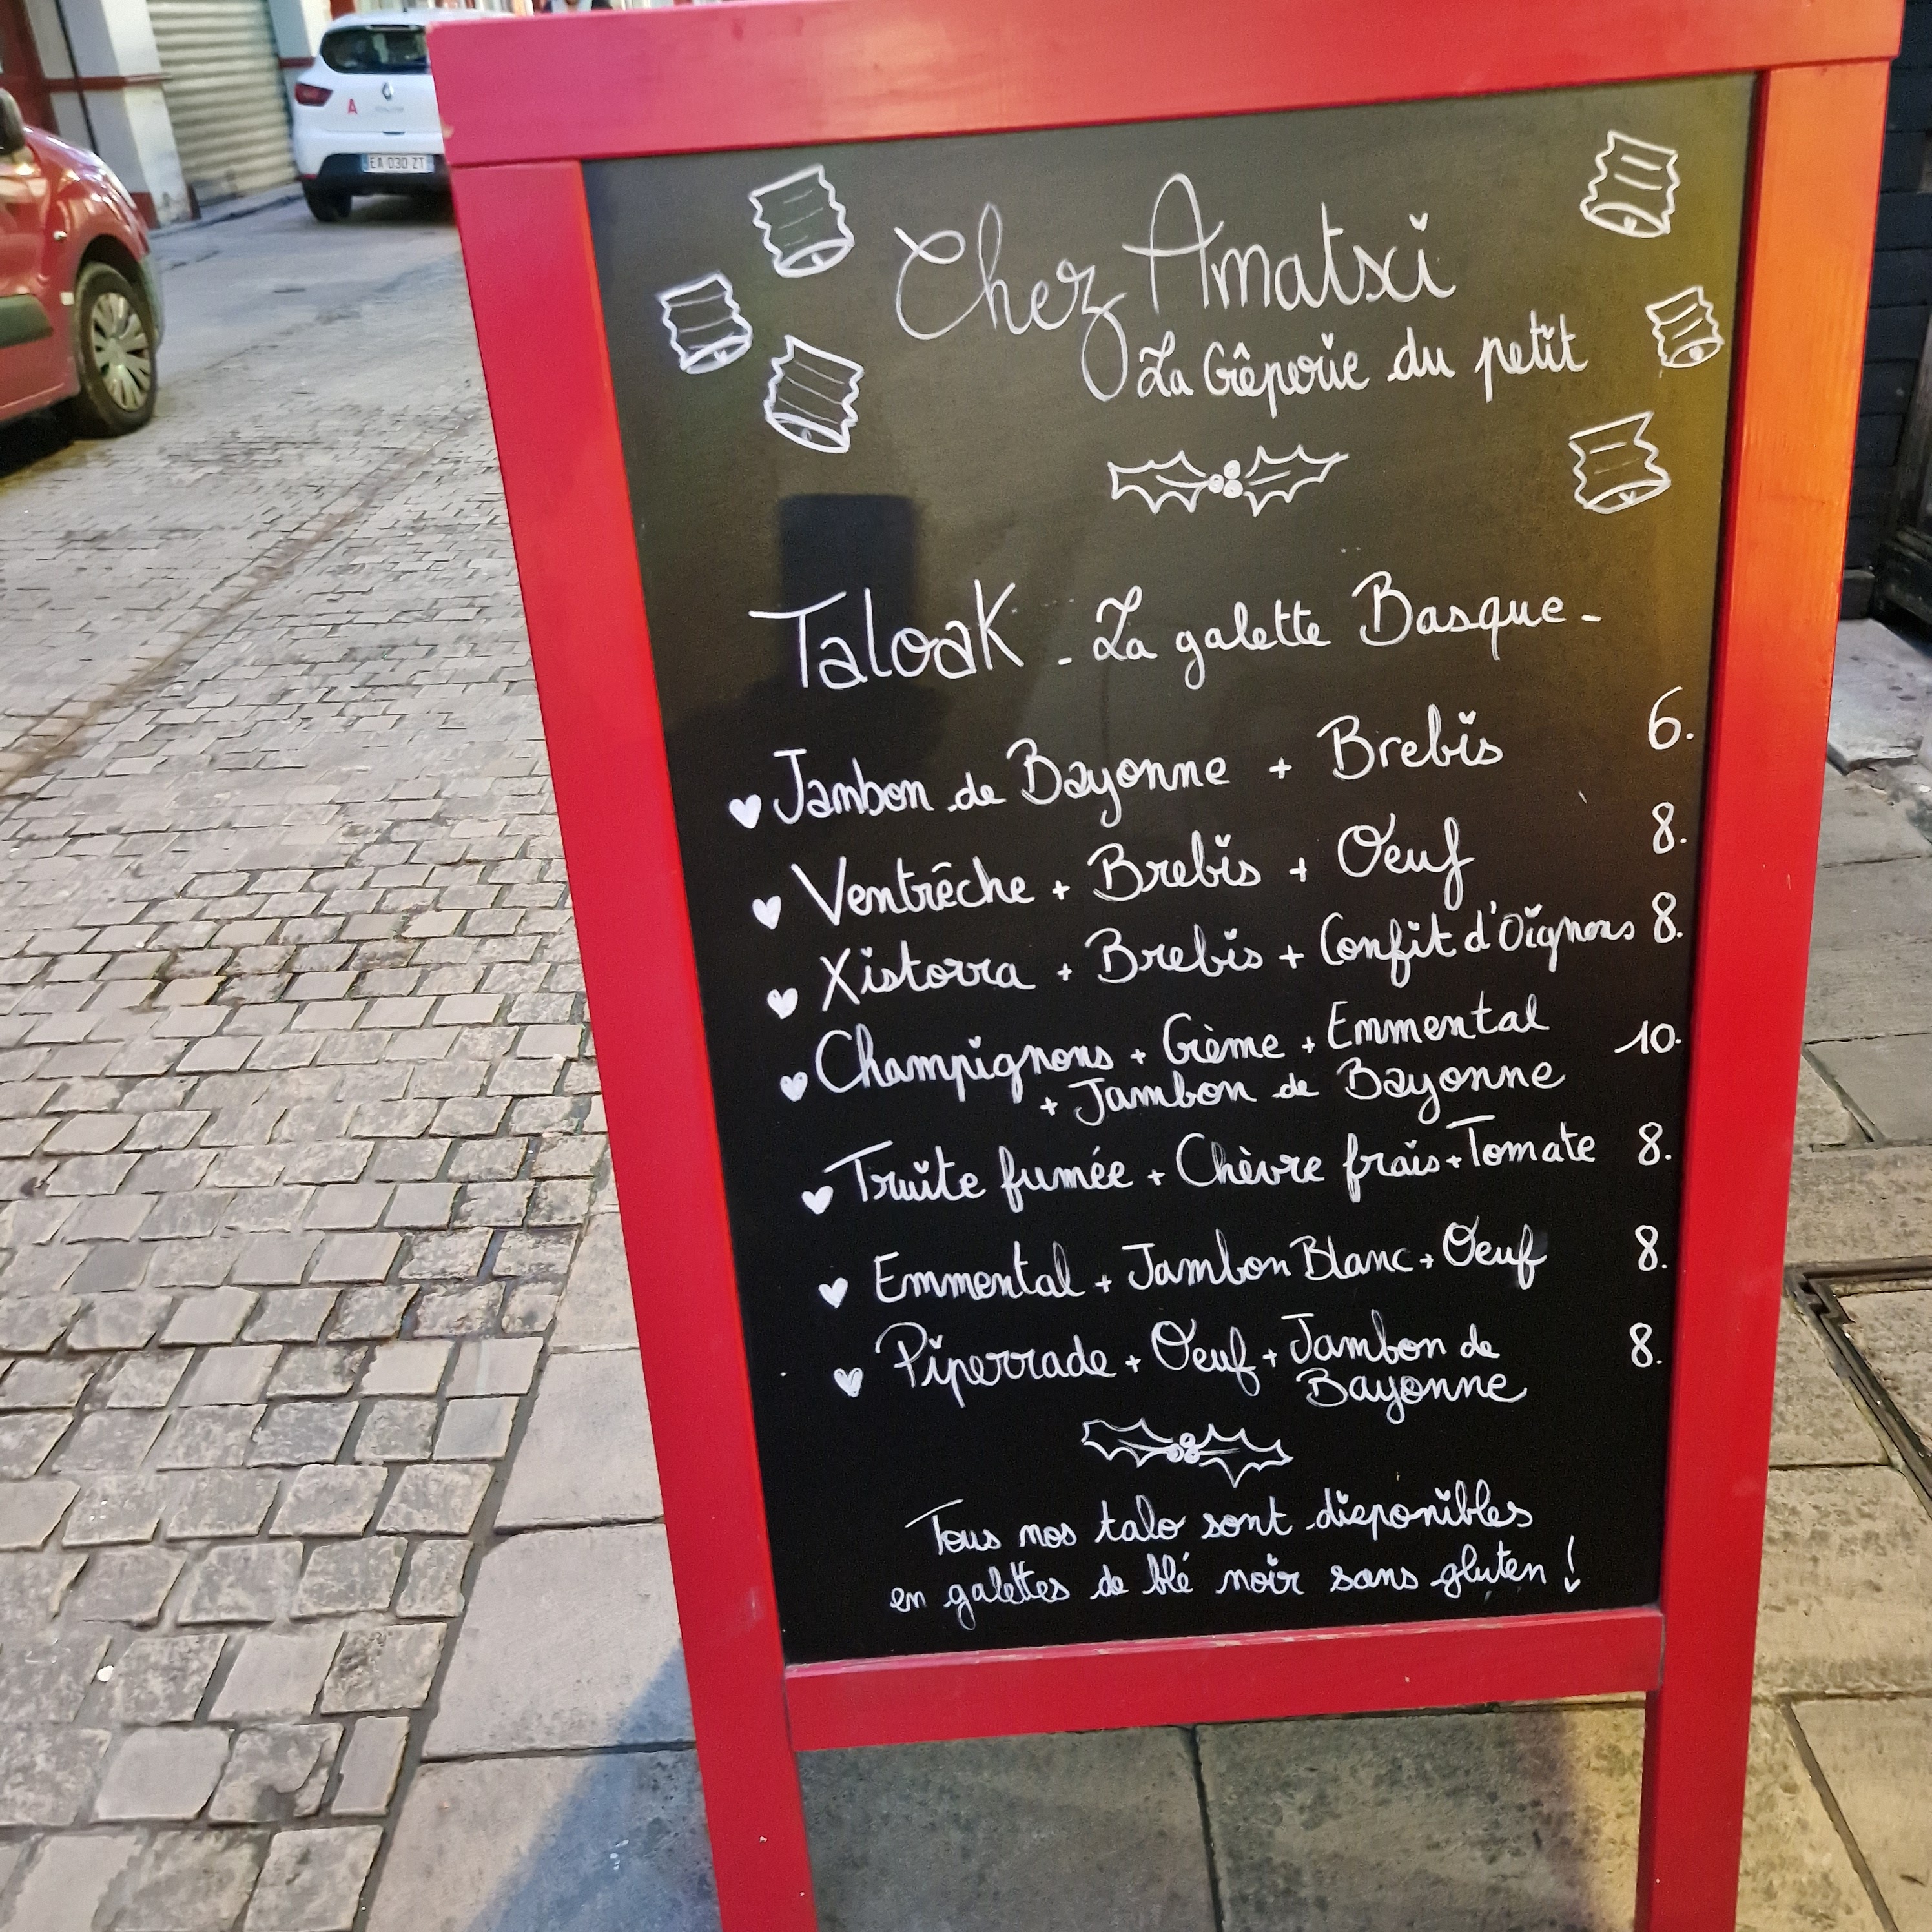 A
EA 030 ZT
Chez Amatxi
La Crêperie du petit
Taloak - La galette Basque -
Jambon de Bayonne + Brebis 6.
Ventrêche + Brebis + Oeuf 8.
Xistorra + Brebis + Confit d'Oignons 8.
Champignons + Crème + Emmental 10.
+ Jambon de Bayonne
Truite fumée + Chèvre frais + Tomate 8.
Emmental + Jambon Blanc + Oeuf 8.
Piperrade + Oeuf + Jambon de 8.
Bayonne
Tous nos talo sont disponibles
en galettes de blé noir sans gluten !